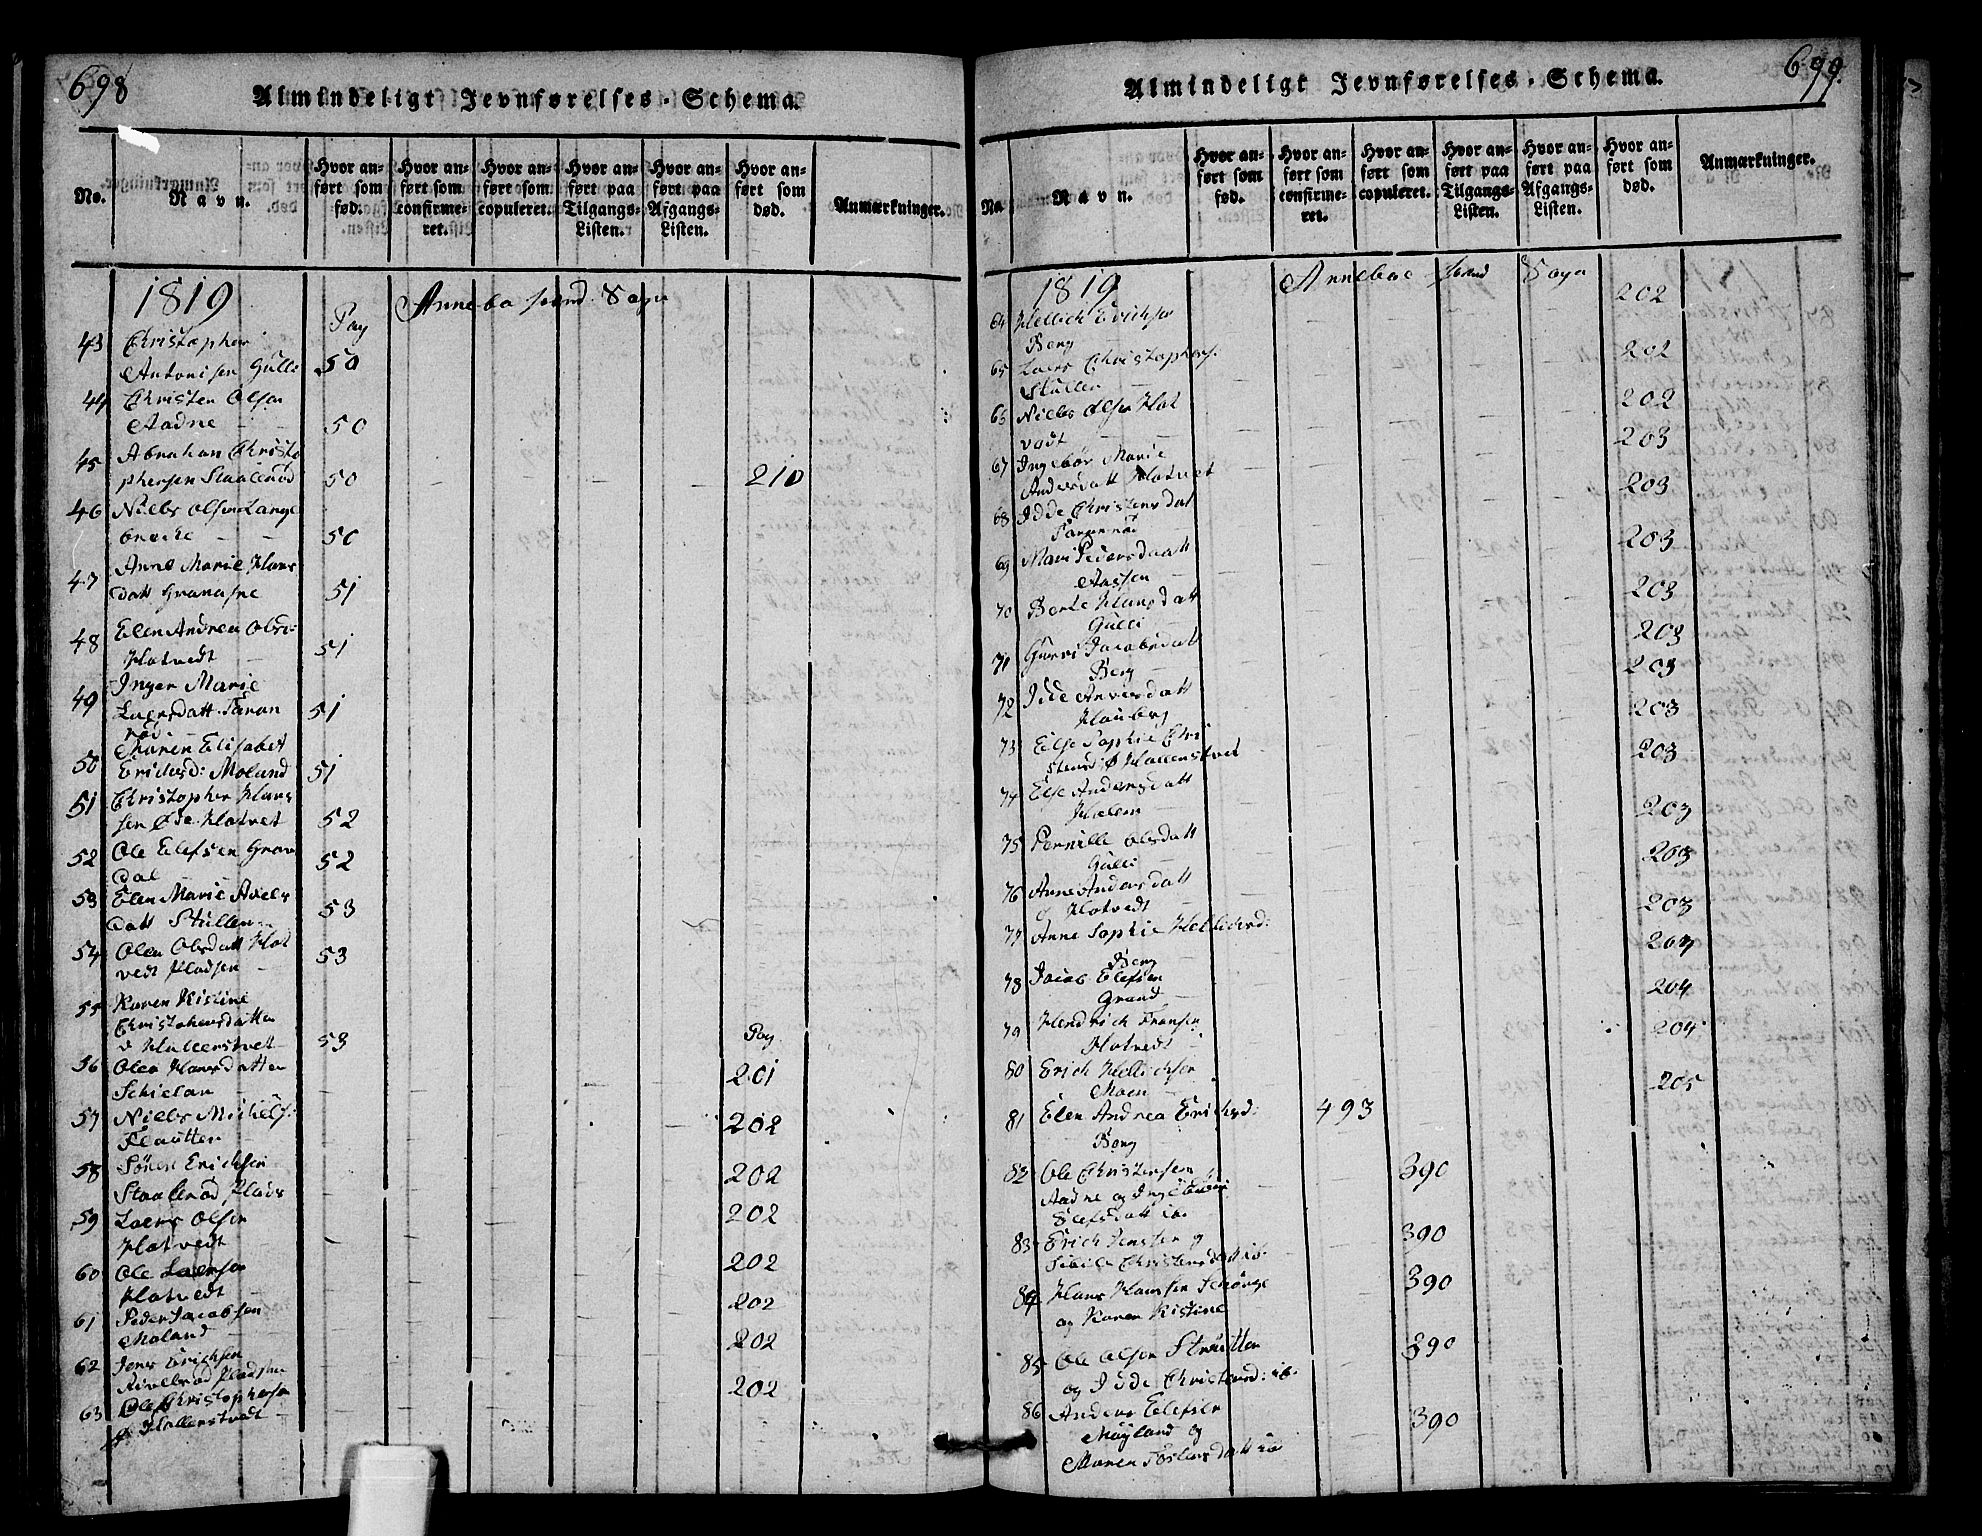 698
Almindeligt Jevnførelses-Schema.
No.
Navn.
Hvor an-
ført som
fød.
Hvor an-
ført som
confirme-
ret.
Hvor an-
ført som
copuleret.
Hvor an-
ført paa
Tilgangs-
Listen.
Hvor an-
ført paa
Afgangs-
Listen.
Hvor an-
ført som
død.
Anmærkninger.
1819
Pag
43 Christopher
Antonisen Gulli 50
44 Christen Olsen
Aadne 50
45 Abraham Christo
phersen Staalerød 50 210
46 Niels Olsen Lange
brecke 50
47 Anne Marie Hans
datt Granasne 51
48 Elen Andrea Olsd:
Hotvedt 51
49 Inger Marie
Laersdatt Faran
rød 51
50 Maren Elisabet
Ericksd: Moland 51
51 Christopher Hans
sen Øde Hotvet 52
52 Ole Elefsen Grav
dal 52
53 Elen Marie Axels
datt Stullen 53
54 Olea Olsdatt Hot
vedt Pladsen 53
55 Karen Kistine
Christophersdatter
v Hallenstvet 53
Pag
56 Olea Hansdatter
Schielan 201
57 Niels Michels:
Flautten 202
58 Sören Erichsen
Staalerød Plads 202
59 Laers Olsen
Hotvedt 202
60 Ole Laersen
Hotvedt 202
61 Peder Jacobsen
Moland 202
62 Jens Erichsen
Axelsrød Pladsen 202
63 Ole Christophersen
Hallenstvedt 202
699.
Almindeligt Jevnførelses-Schema.
No
Navn.
Hvor an-
ført som
fød.
Hvor an-
ført som
confirme-
ret.
Hvor an-
ført som
copuleret.
Hvor an-
ført paa
Tilgangs-
Listen.
Hvor an-
ført paa
Afgangs-
Listen.
Hvor an-
ført som
død.
Anmærkninger.
1819
64 Hellich Erichsen 202
Berg
65 Laers Christophers. 202
Stullen
66 Niels Olsen Hot 202
vedt
67 Ingebör Marie 203
Andersdatt Hotvet
68 Idde Christensdat 203
Faranrød
69 Mari Pedersdatt 203
Aassen
70 Berte Hansdatt 203
Gulli
71 Gurri Jacobsdatt 203
Berg 203
72 Idde Anversdatt
Hauberg 203
73 Else Sophie Chri
stensd: Ø Hallenstvet 203
74 Else Andersdatt
Halem 203
75 Pernille Olsdatt
Gulli 203
76 Anne Andersdatt
Hotvedt 203
77 Anne Sophie Hellichsd:
Berg 204
78 Jacob Elefsen
Grand 204
79 Hendrich Fransen
Hotvedt 204
80 Erich Hellichsen
Moen 205
81 Elen Andrea Erichsd: 493
Berg
82 Ole Christensen 390
Aadne og
Elefsdatt ib.
83 Erich Jenssen og 390
Sibille Christensdatt ib.
84 Hans Hanssen 390
og Karen Kistine
85 Ole Olsen Strøutten 390
og Idde Christensd: ib.
86 Anders Elefsen 390
Møyland og
Maren Torlarsdatt ib